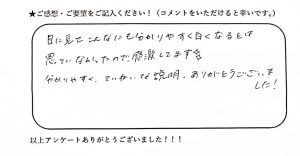 ★ご感想・ご要望をご記入ください!(コメントをいただけると幸いです。)
目に見えてこんなにも分かりやすく白くなるとは
思ていなかったので感激してます
分かりやすく、ていねいな説明、ありがとうございま
した!
以上アンケートありがとうございました!!!